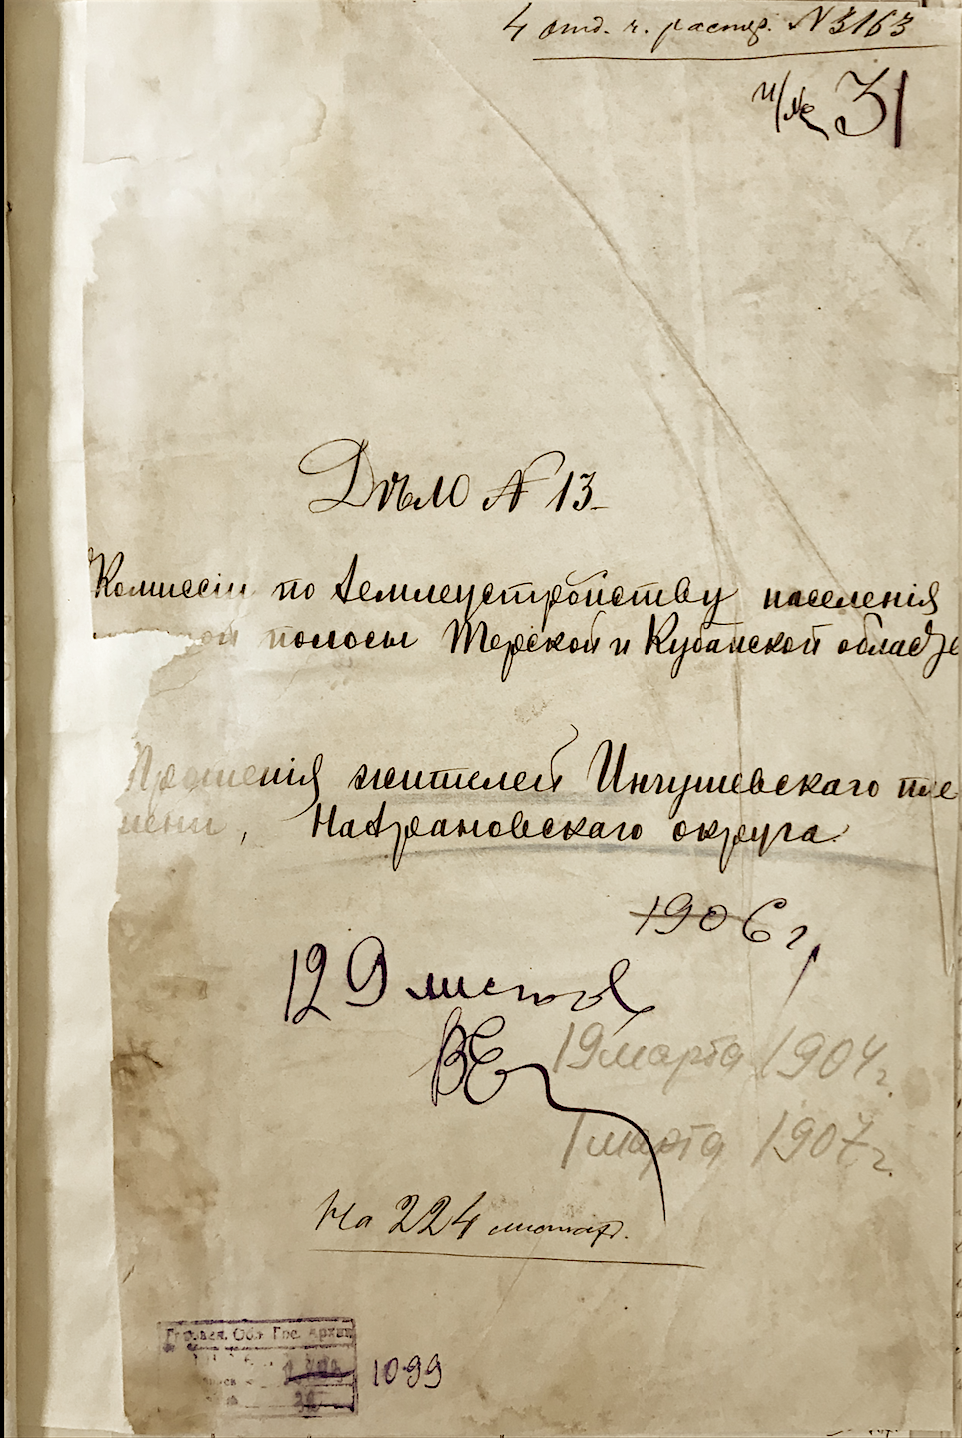 4 отд. ч. распор. № 3163
н/№ 31
Дѣло № 13
Комиссіи по землеустройству населенія
ной полосы Терской и Кубанской областе
Прошенія жителей Ингушевскаго пле
мени, Назрановскаго округа.
1906 г
129 листов
ВЕ
19 марта 1904 г.
1 марта 1907 г.
На 224 листах.
Обл. Гос. Архив
1099